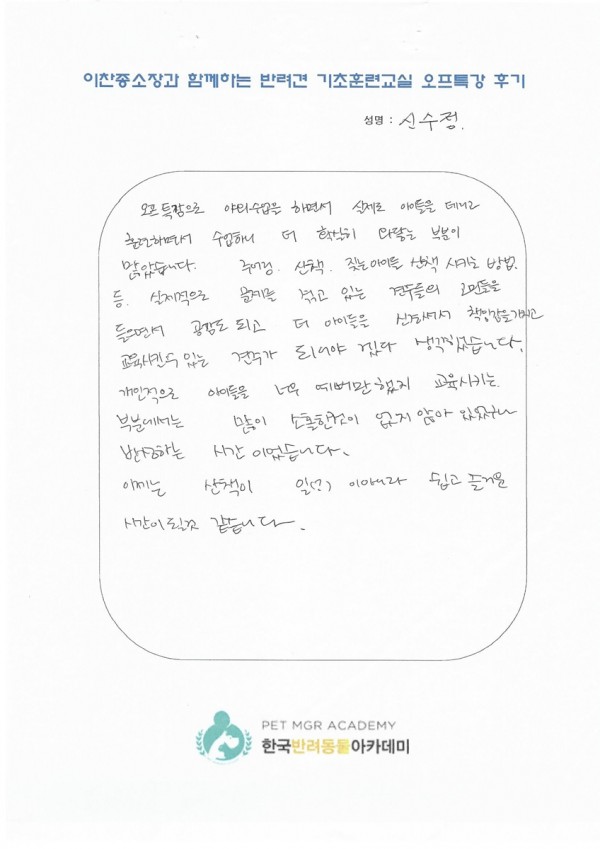 이찬종소장과 함께하는 반려견 기초훈련교실 오프특강 후기
성명 : 신수정.
오프특강으로 야외수업을 하면서 실제로 아이들을 데리고
훈련하면서 수업하니 더 확실히 와닿는 부분이
많았습니다. 줄서기. 산책. 짖는아이들 산책 시키는 방법.
등. 실제적으로 문제를 겪고 있는 견주들의 고민들을
들으면서 공감도 되고 더 아이들을 신경써서 책임감을가지고
교육시킬수 있는 견주가 되어야 겠다 생각했었습니다.
개인적으로 아이들을 너무 예뻐만 했지 교육시키는.
부분에서는 많이 소홀한점이 없지 않아 있었구나
반성하는 시간 이었습니다.
이제는 산책이 일(?) 이아니라 쉽고 즐거운
시간이 될것 같습니다.
PET MGR ACADEMY
한국반려동물아카데미